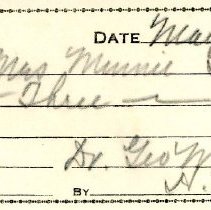 DATE May
Mrs Minnie
Three
Dr. Geo W
BY H.